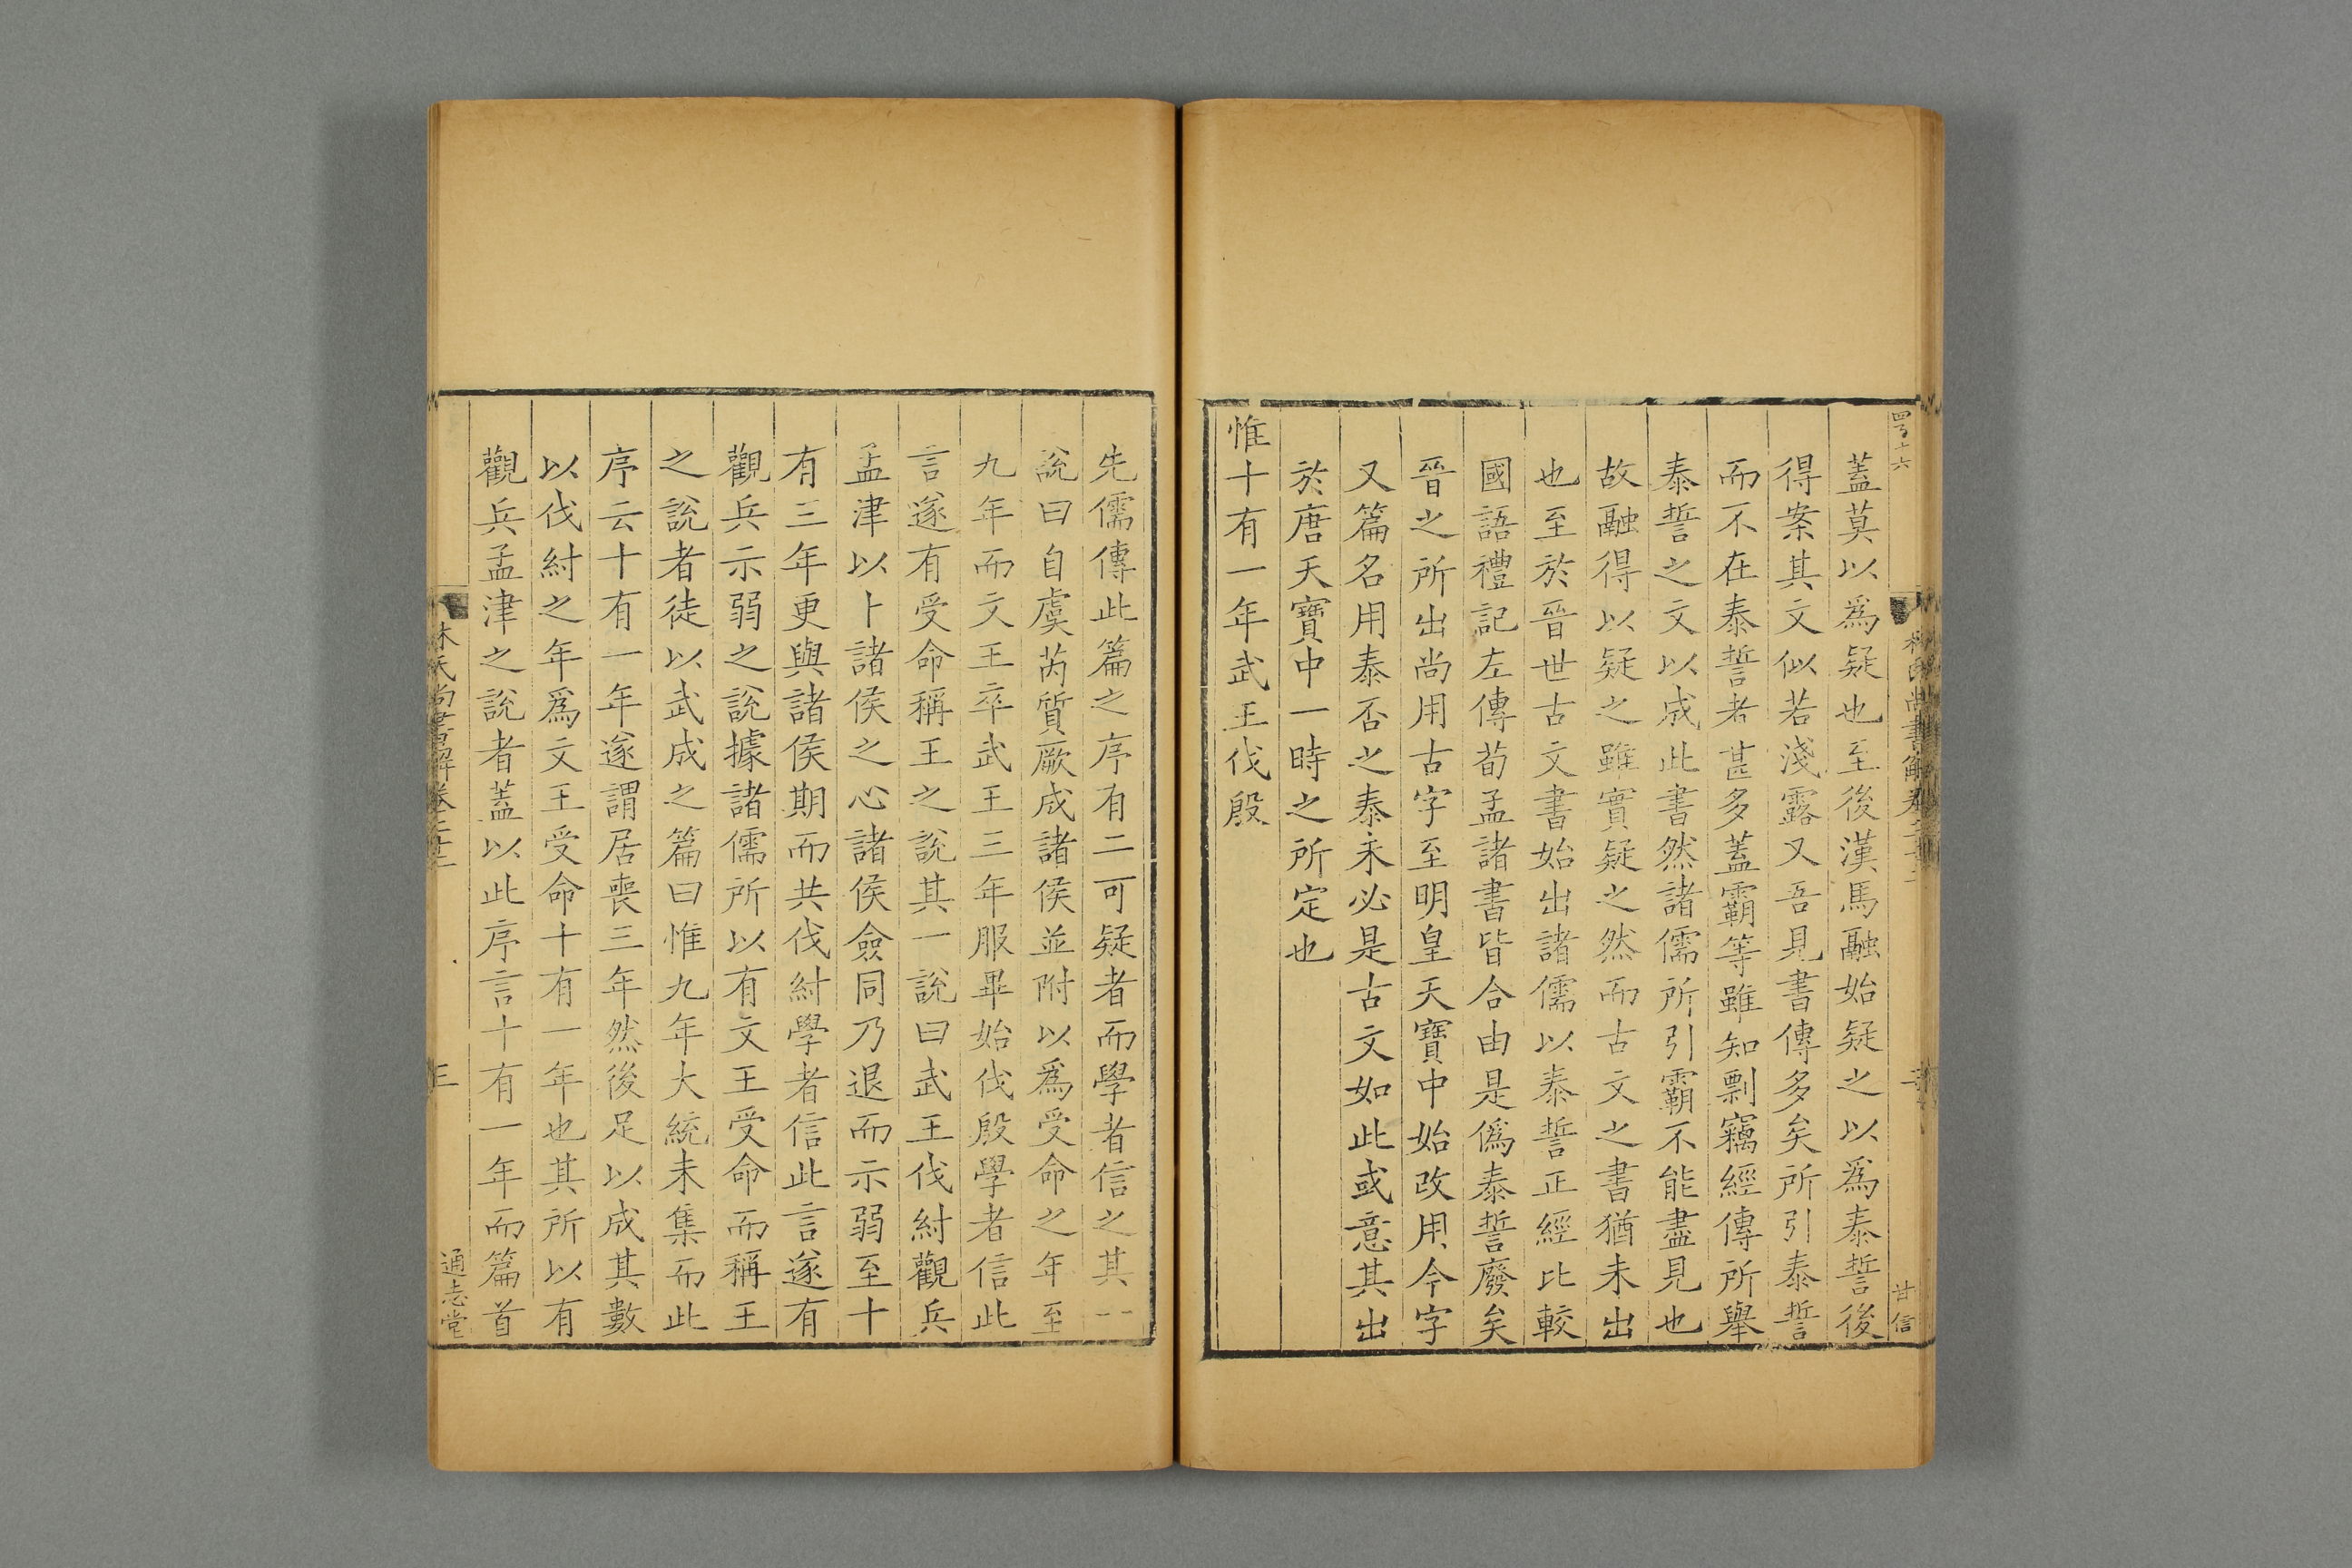 蓋莫以爲疑也至後漢馬融始疑之以爲泰誓後
得案其文似若淺露又吾見書傳多矣所引泰誓
而不在泰誓者甚多蓋霸等雖知剽竊經傳所舉
泰誓之文以成此書然諸儒所引霸不能盡見也
故融得以疑之雖實疑之然而古文之書猶未出
也至於晉世古文書始出諸儒以泰誓正經比較
國語禮記左傳荀孟諸書皆合由是僞泰誓廢矣
晉之所出尚用古字至明皇天寶中始改用今字
又篇名用泰否之泰未必是古文如此或意其出
於唐天寶中一時之所定也
惟十有一年武王伐殷
先儒傳此篇之序有二可疑者而學者信之其一
說曰自虞芮質厥成諸侯並附以爲受命之年至
九年而文王卒武王三年服畢始伐殷學者信此
言遂有受命稱王之說其一說曰武王伐紂觀兵
孟津以卜諸侯之心諸侯僉同乃退而示弱至十
有三年更與諸侯期而共伐紂學者信此言遂有
觀兵示弱之說據諸儒所以有文王受命而稱王
之說者徒以武成之篇曰惟九年大統未集而此
序云十有一年遂謂居喪三年然後足以成其數
以伐紂之年爲文王受命十有一年也其所以有
觀兵孟津之說者蓋以此序言十有一年而篇首
林氏尚書解卷二十二
三
通志堂
甘信